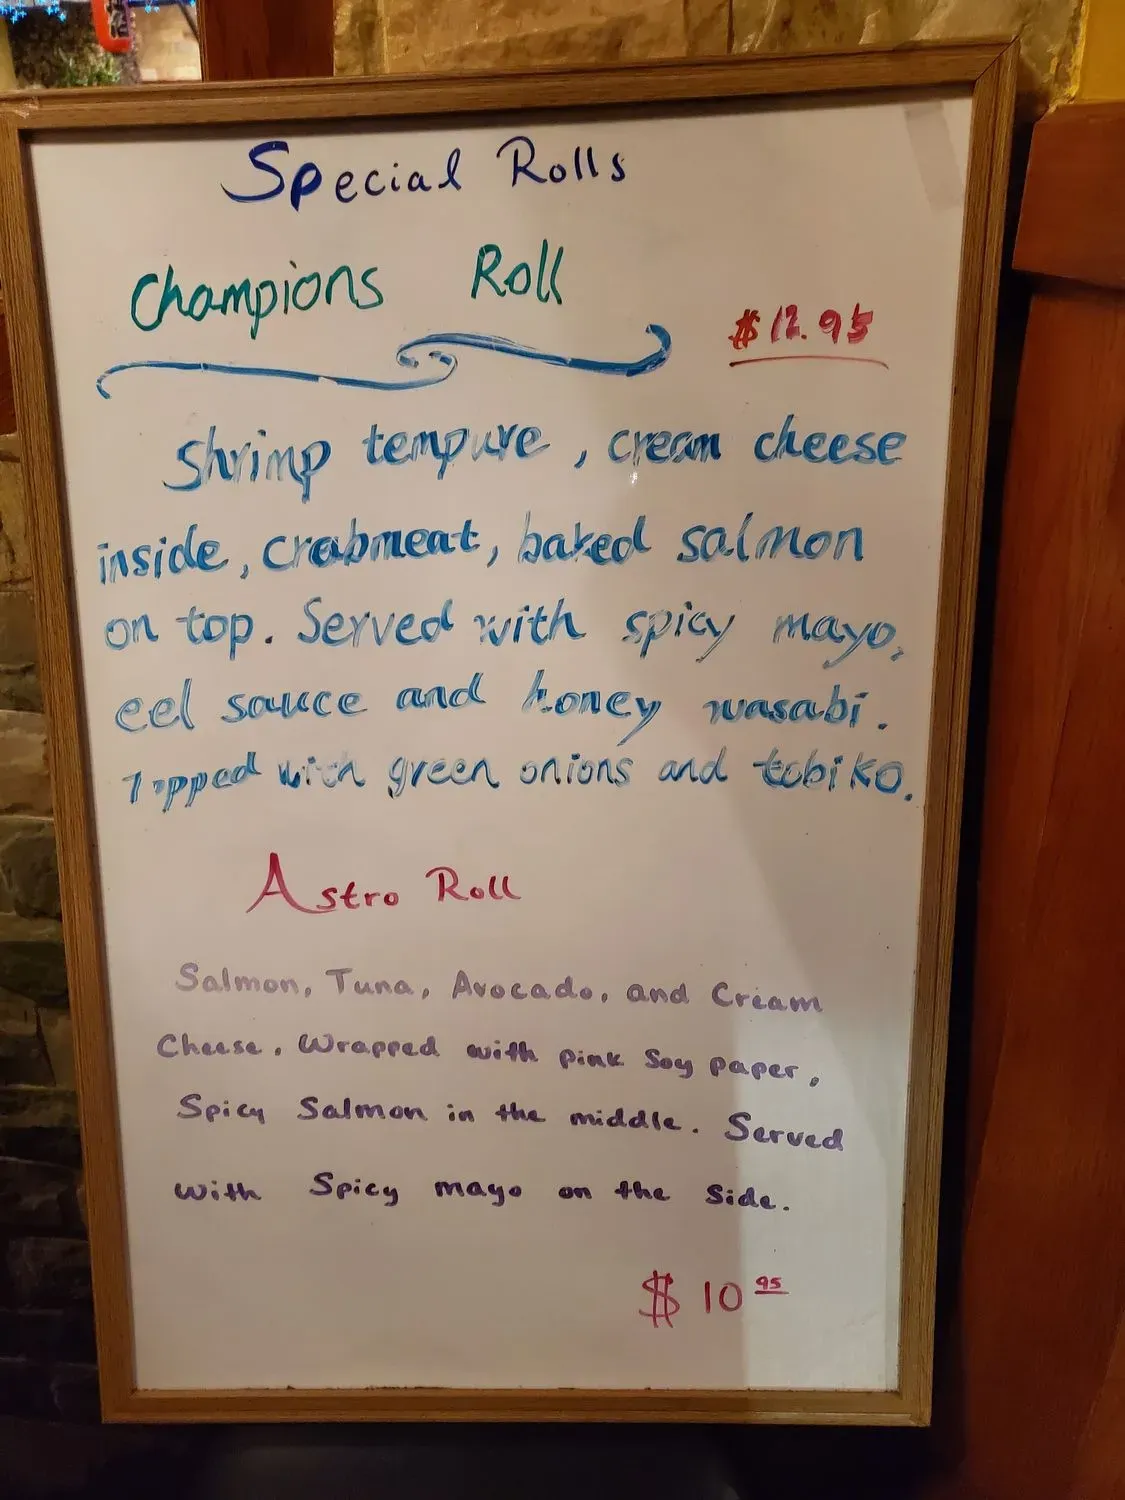 Special Rolls
Champions Roll
$12.95
Shrimp tempure, cream cheese
inside, crabmeat, baked salmon
on top. Served with spicy mayo,
eel sauce and honey wasabi.
Topped with green onions and tobiko.
Astro Roll
Salmon, Tuna, Avocado, and Cream
Cheese, Wrapped with pink Soy paper,
Spicy Salmon in the middle. Served
with Spicy mayo on the Side.
$10 95